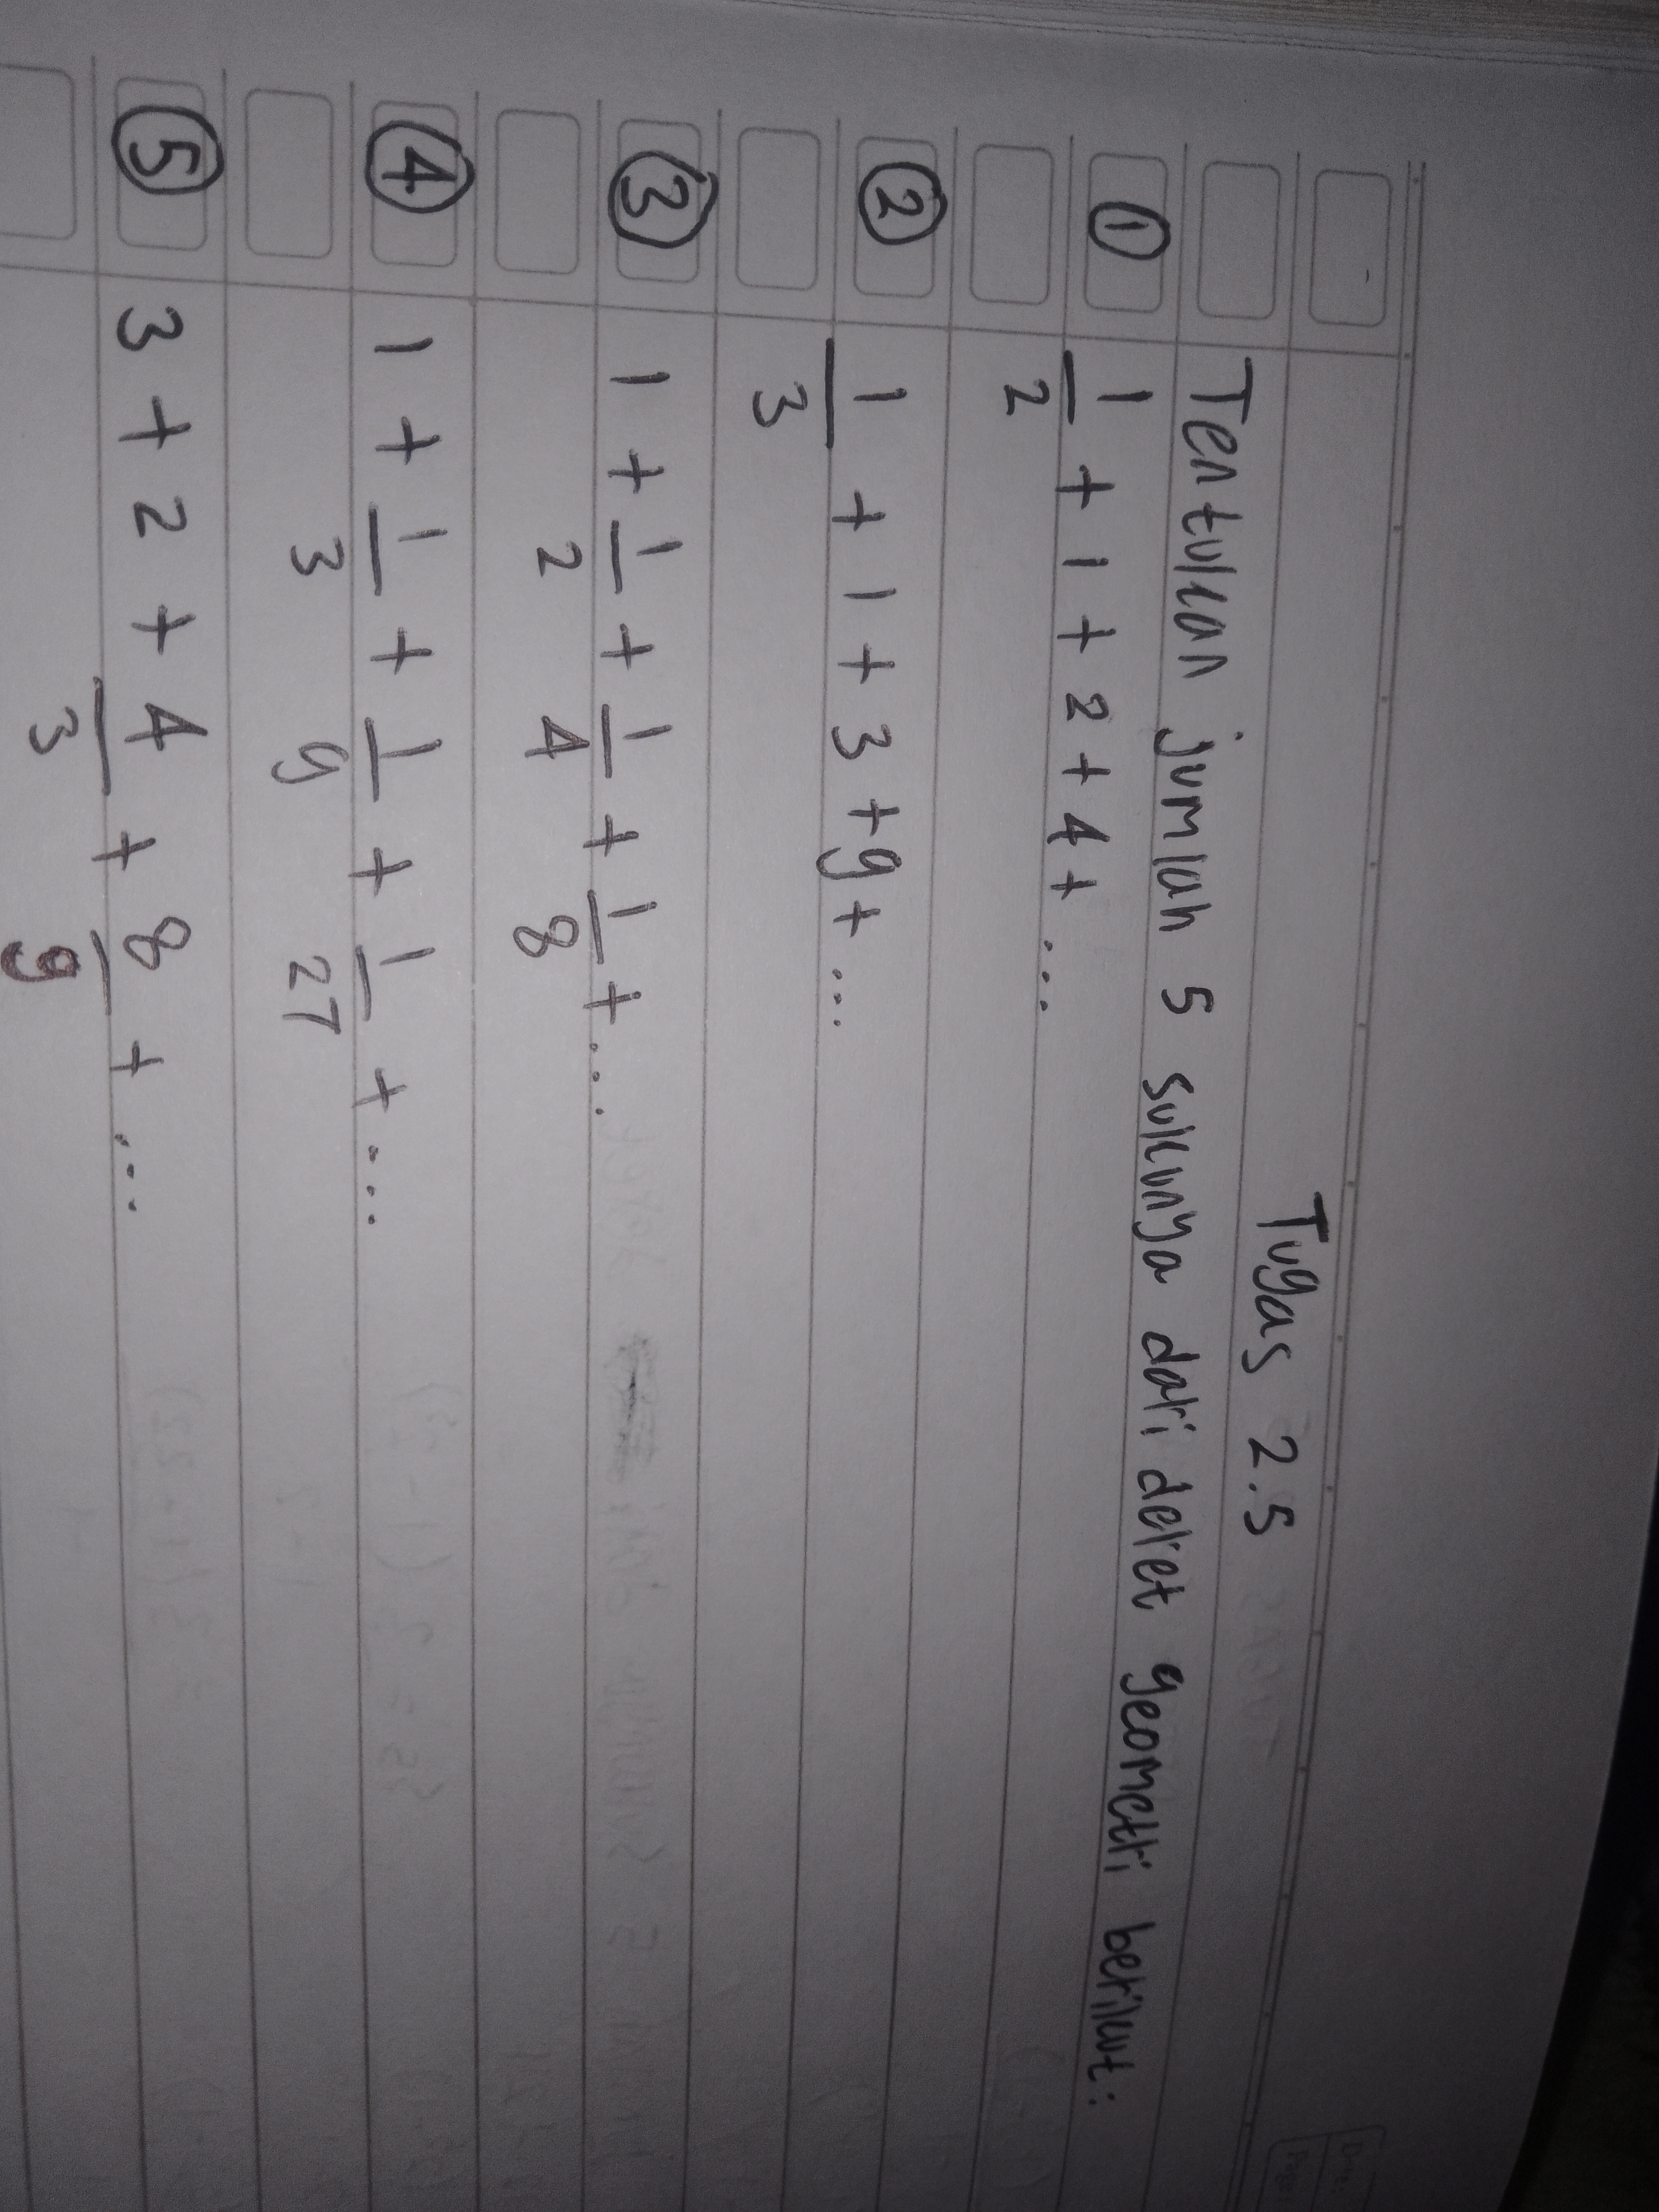 Tugas 2.5
Tentukan jumlah 5 sukunya dari deret geometri berikut:
① 1/2 + 1 + 2 + 4 + ...
② 1/3 + 1 + 3 + 9 + ...
③ 1 + 1/2 + 1/4 + 1/8 + ...
④ 1 + 1/3 + 1/9 + 1/27 + ...
⑤ 3 + 2 + 4/3 + 8/9 + ...